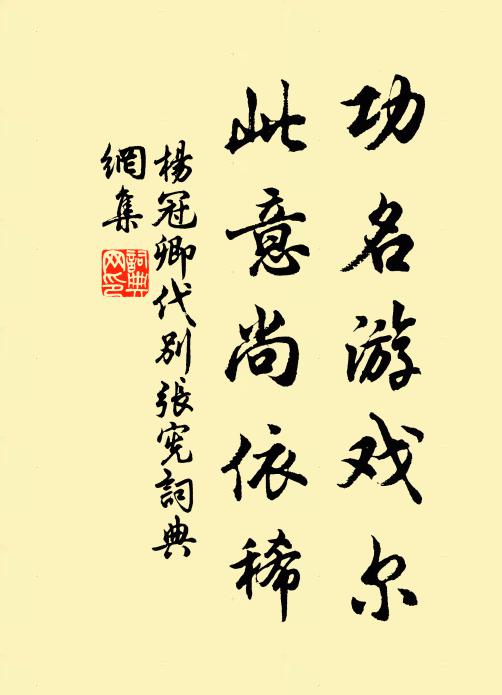 功名游戏尔
此意尚依稀
楊冠卿代别張宪詞典
網集
詞典
网印